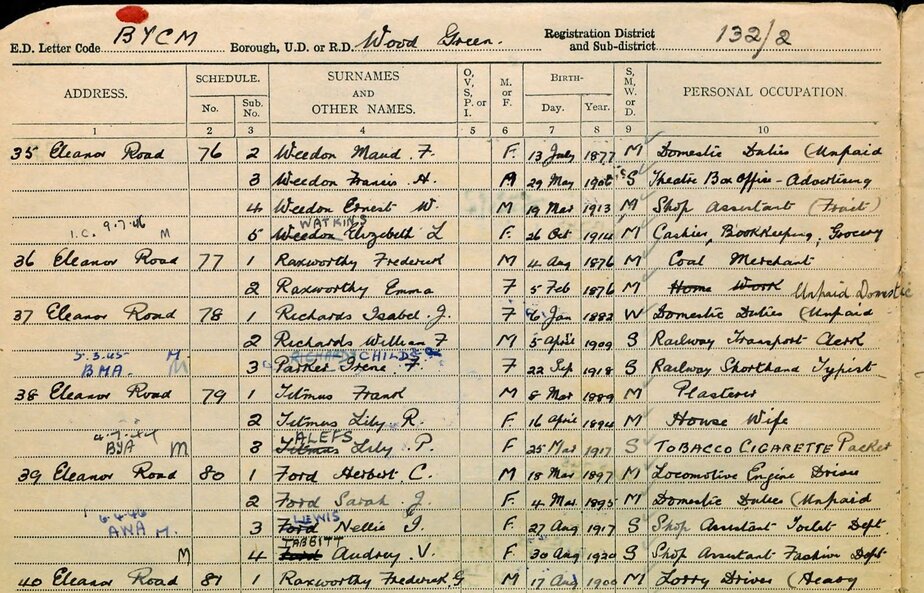 E.D. Letter Code BYCM Borough, U.D. or R.D. Wood Green. Registration District and Sub-district 132/2
ADDRESS. SCHEDULE. No. Sub. No. SURNAMES AND OTHER NAMES. O, V, S, P, or I. M. or F. BIRTH- Day. Year. S, M, W, or D. PERSONAL OCCUPATION.
1 2 3 4 5 6 7 8 9 10
35 Eleanor Road 76 2 Weedon Maud F. F. 13 July 1877 M Domestic Duties (Unpaid
3 Weedon Francis H. 29 May 1906 S Theatre Box Office - Advertising
4 Weedon Ernest W. M 19 Mar 1913 M Shop Assistant (Fruit)
I.C. 9.7.46 M WATKINS
5 Weedon Elizabeth L F. 26 Oct 1914 M Cashier, Bookkeeping, Grocery
36 Eleanor Road 77 1 Raxworthy Frederick M 4 Aug 1876 M Coal Merchant
2 Raxworthy Emma F 5 Feb 1876 M Home Work Unpaid Domestic
37 Eleanor Road 78 1 Richards Isabel J. F 6 Jan 1882 W Domestic Duties (Unpaid
2 Richards William F M 5 April 1909 S Railway Transport Clerk
5.3.45 M CHILDS
BMA. M 3 Parker Irene F. F 22 Sep 1918 S Railway Shorthand Typist
38 Eleanor Road 79 1 Titmus Frank M 8 Mar 1889 M Plasterer
2 Titmus Lily R. F 16 April 1894 M House Wife
4.7.44 ALEFS
BYA M 3 Titmus Lily P. F 25 Mar 1917 S TOBACCO CIGARETTE Packer
39 Eleanor Road 80 1 Ford Herbert C. M 18 Mar 1897 M Locomotive Engine Driver
2 Ford Sarah J. F. 4 Mar 1895 M Domestic Duties (Unpaid
6.4.46 LEWIS
AWA M. 3 Ford Nellie I. F. 27 Aug 1917 S Shop Assistant Toilet Dept.
TABBITT
M 4 Ford Audrey V. F. 30 Aug 1920 S Shop Assistant Fashion Dept.
40 Eleanor Road 81 1 Raxworthy Frederick G M 17 Aug 1900 M Lorry Driver (Heavy